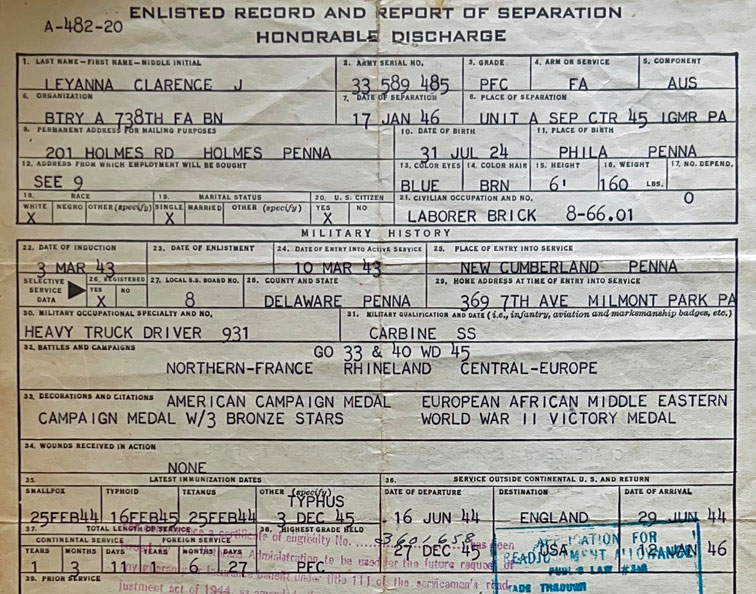 A-482-20
ENLISTED RECORD AND REPORT OF SEPARATION
HONORABLE DISCHARGE
1. LAST NAME-FIRST NAME-MIDDLE INITIAL 2. ARMY SERIAL NO. 3. GRADE 4. ARM OR SERVICE 5. COMPONENT
LEYANNA CLARENCE J 33 589 485 PFC FA AUS
6. ORGANIZATION 7. DATE OF SEPARATION 8. PLACE OF SEPARATION
BTRY A 738TH FA BN 17 JAN 46 UNIT A SEP CTR 45 IGMR PA
9. PERMANENT ADDRESS FOR MAILING PURPOSES 10. DATE OF BIRTH 11. PLACE OF BIRTH
201 HOLMES RD HOLMES PENNA 31 JUL 24 PHILA PENNA
12. ADDRESS FROM WHICH EMPLOYMENT WILL BE SOUGHT 13. COLOR EYES 14. COLOR HAIR 15. HEIGHT 16. WEIGHT 17. NO. DEPEND.
SEE 9 BLUE BRN 6' 160 LBS. 0
18. RACE 19. MARITAL STATUS 20. U. S. CITIZEN 21. CIVILIAN OCCUPATION AND NO.
WHITE NEGRO OTHER (specify) SINGLE MARRIED OTHER (specify) YES NO
X X X LABORER BRICK 8-66.01
MILITARY HISTORY
22. DATE OF INDUCTION 23. DATE OF ENLISTMENT 24. DATE OF ENTRY INTO ACTIVE SERVICE 25. PLACE OF ENTRY INTO SERVICE
3 MAR 43 10 MAR 43 NEW CUMBERLAND PENNA
SELECTIVE SERVICE DATA 26. REGISTERED YES NO 27. LOCAL S.S. BOARD NO. 28. COUNTY AND STATE 29. HOME ADDRESS AT TIME OF ENTRY INTO SERVICE
X 8 DELAWARE PENNA 369 7TH AVE MILMONT PARK PA
30. MILITARY OCCUPATIONAL SPECIALTY AND NO. 31. MILITARY QUALIFICATION AND DATE (i.e., infantry, aviation and marksmanship badges, etc.)
HEAVY TRUCK DRIVER 931 CARBINE SS
32. BATTLES AND CAMPAIGNS GO 33 & 40 WD 45
NORTHERN-FRANCE RHINELAND CENTRAL-EUROPE
33. DECORATIONS AND CITATIONS AMERICAN CAMPAIGN MEDAL EUROPEAN AFRICAN MIDDLE EASTERN
CAMPAIGN MEDAL W/3 BRONZE STARS WORLD WAR II VICTORY MEDAL
34. WOUNDS RECEIVED IN ACTION
NONE
35. LATEST IMMUNIZATION DATES 36. SERVICE OUTSIDE CONTINENTAL U. S. AND RETURN
SMALLPOX TYPHOID TETANUS OTHER (specify) DATE OF DEPARTURE DESTINATION DATE OF ARRIVAL
TYPHUS
25FEB44 16FEB45 25FEB44 3 DEC 45 16 JUN 44 ENGLAND 29 JUN 44
37. TOTAL LENGTH OF SERVICE 38. HIGHEST GRADE HELD
a certificate of eligibility No. 3601658 been
CONTINENTAL SERVICE FOREIGN SERVICE 27 DEC 45 USA 12 JAN 46
YEARS MONTHS DAYS YEARS MONTHS DAYS
Administration to be used for the future request of
1 3 11 1 6 27 PFC
any guaranty or insurance benefit under title III of the servicemen's read-
39. PRIOR SERVICE
justment act of 1944, as
APPLICATION FOR
READJUSTMENT ALLOWANCE
PUBLIC LAW #346
MADE THROUGH